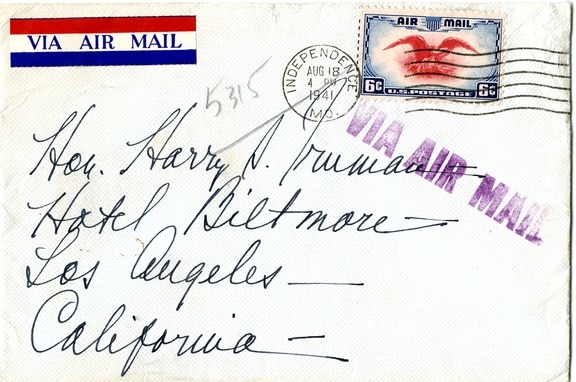 VIA AIR MAIL
AIR MAIL
6¢ U.S. POSTAGE 6¢
INDEPENDENCE
AUG 18
4 PM
1941
MO.
5315
VIA AIR MAIL
Hon. Harry S. Truman
Hotel Biltmore
Los Angeles
California